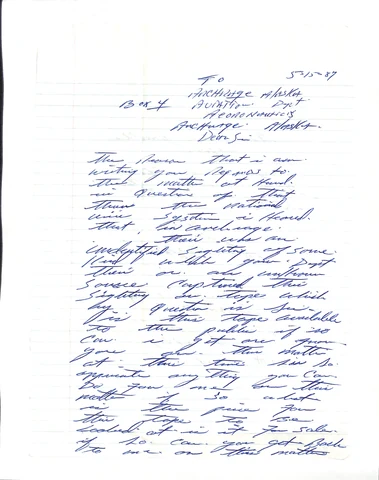 5-15-87
To
Anchorage Alaska
Box 4 Aviation Dept
Aeronautics
Anchorage Alaska.
Dear Sir
The Reason that i am
writing you Regards to
the matter at Hand.
in Question of That
the National
System is Heard.
that in anchorage
their was an
Sighting of some
Kind while your Dept
their or an unknown
Source Captured this
Sighting on tape which
my Question is Sir.
is this tape available
to the public if so
Can i get
you on this matter
at this time Sir So
any Thing you Can
Do for me on this
matter if So what
is the price for
this tape to be
looked at is it for sale.
if So. Can you get Back
to me on this matter